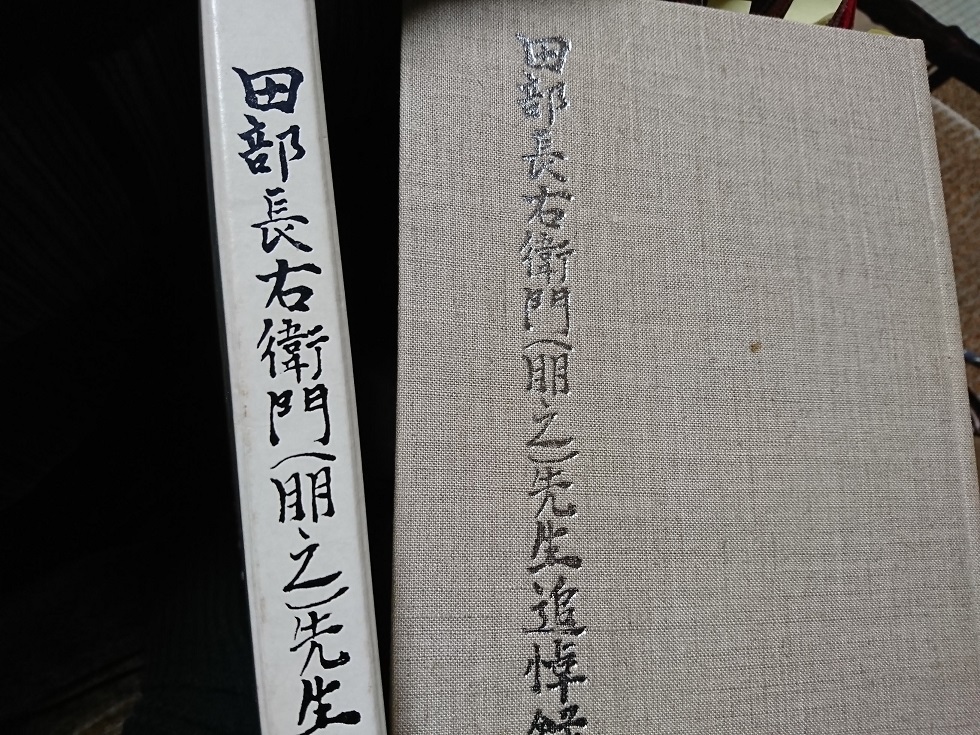 田部長右衛門(朋之)先生
田部長右衛門(朋之)先生追悼